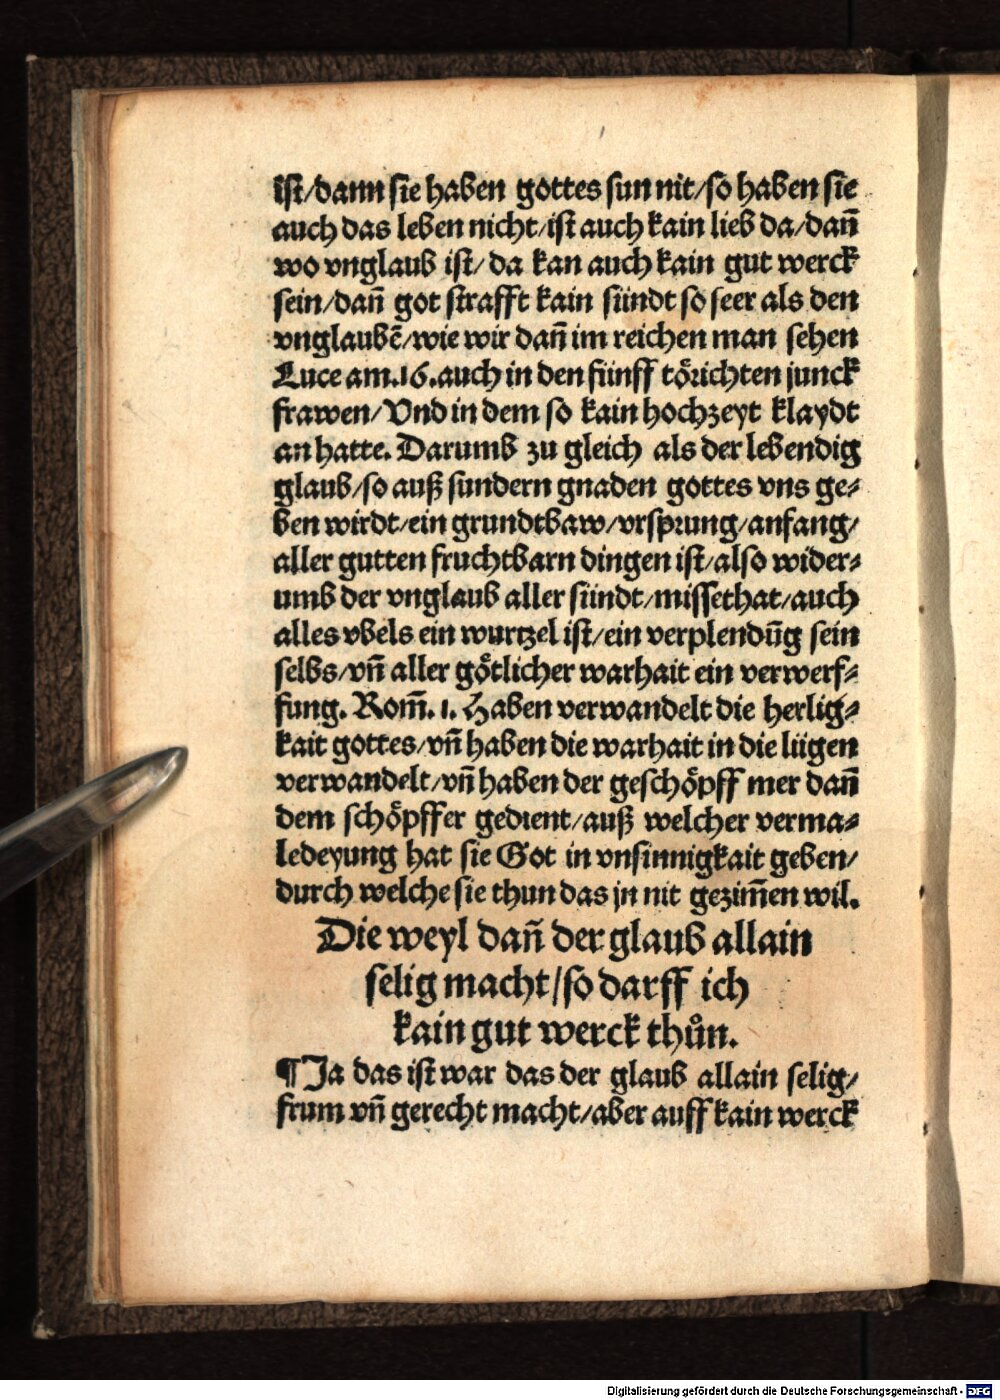 ist/dann sie haben gottes sun nit/so haben sie
auch das leben nicht/ist auch kain lieb da/dañ
wo vnglaub ist/da kan auch kain gut werck
sein/dañ got strafft kain sündt so seer als den
vnglaubẽ/wie wir dañ im reichen man sehen
Luce am.16.auch in den fünff törichten junck
frawen/Vnd in dem so kain hochzeyt klaydt
an hatte. Darumb zu gleich als der lebendig
glaub/so auß sundern gnaden gottes vns ge⸗
ben wirdt/ein grundtbaw/vrsprung/anfang/
aller gutten fruchtbarn dingen ist/also wider⸗
umb der vnglaub aller sündt/missethat/auch
alles vbels ein wurtzel ist/ein verplendūg sein
selbs/vñ aller götlicher warhait ein verwerf⸗
fung. Rom̄. 1. Haben verwandelt die herlig⸗
kait gottes/vñ haben die warhait in die lügen
verwandelt/vñ haben der geschöpff mer dañ
dem schöpffer gedient/auß welcher verma⸗
ledeyung hat sie Got in vnsinnigkait geben/
durch welche sie thun das jn nit gezim̄en wil.
Die weyl dañ der glaub allain
selig macht/so darff ich
kain gut werck thůn.
¶ Ja das ist war das der glaub allain selig/
frum vñ gerecht macht/aber auff kain werck
Digitalisierung gefördert durch die Deutsche Forschungsgemeinschaft - DFG